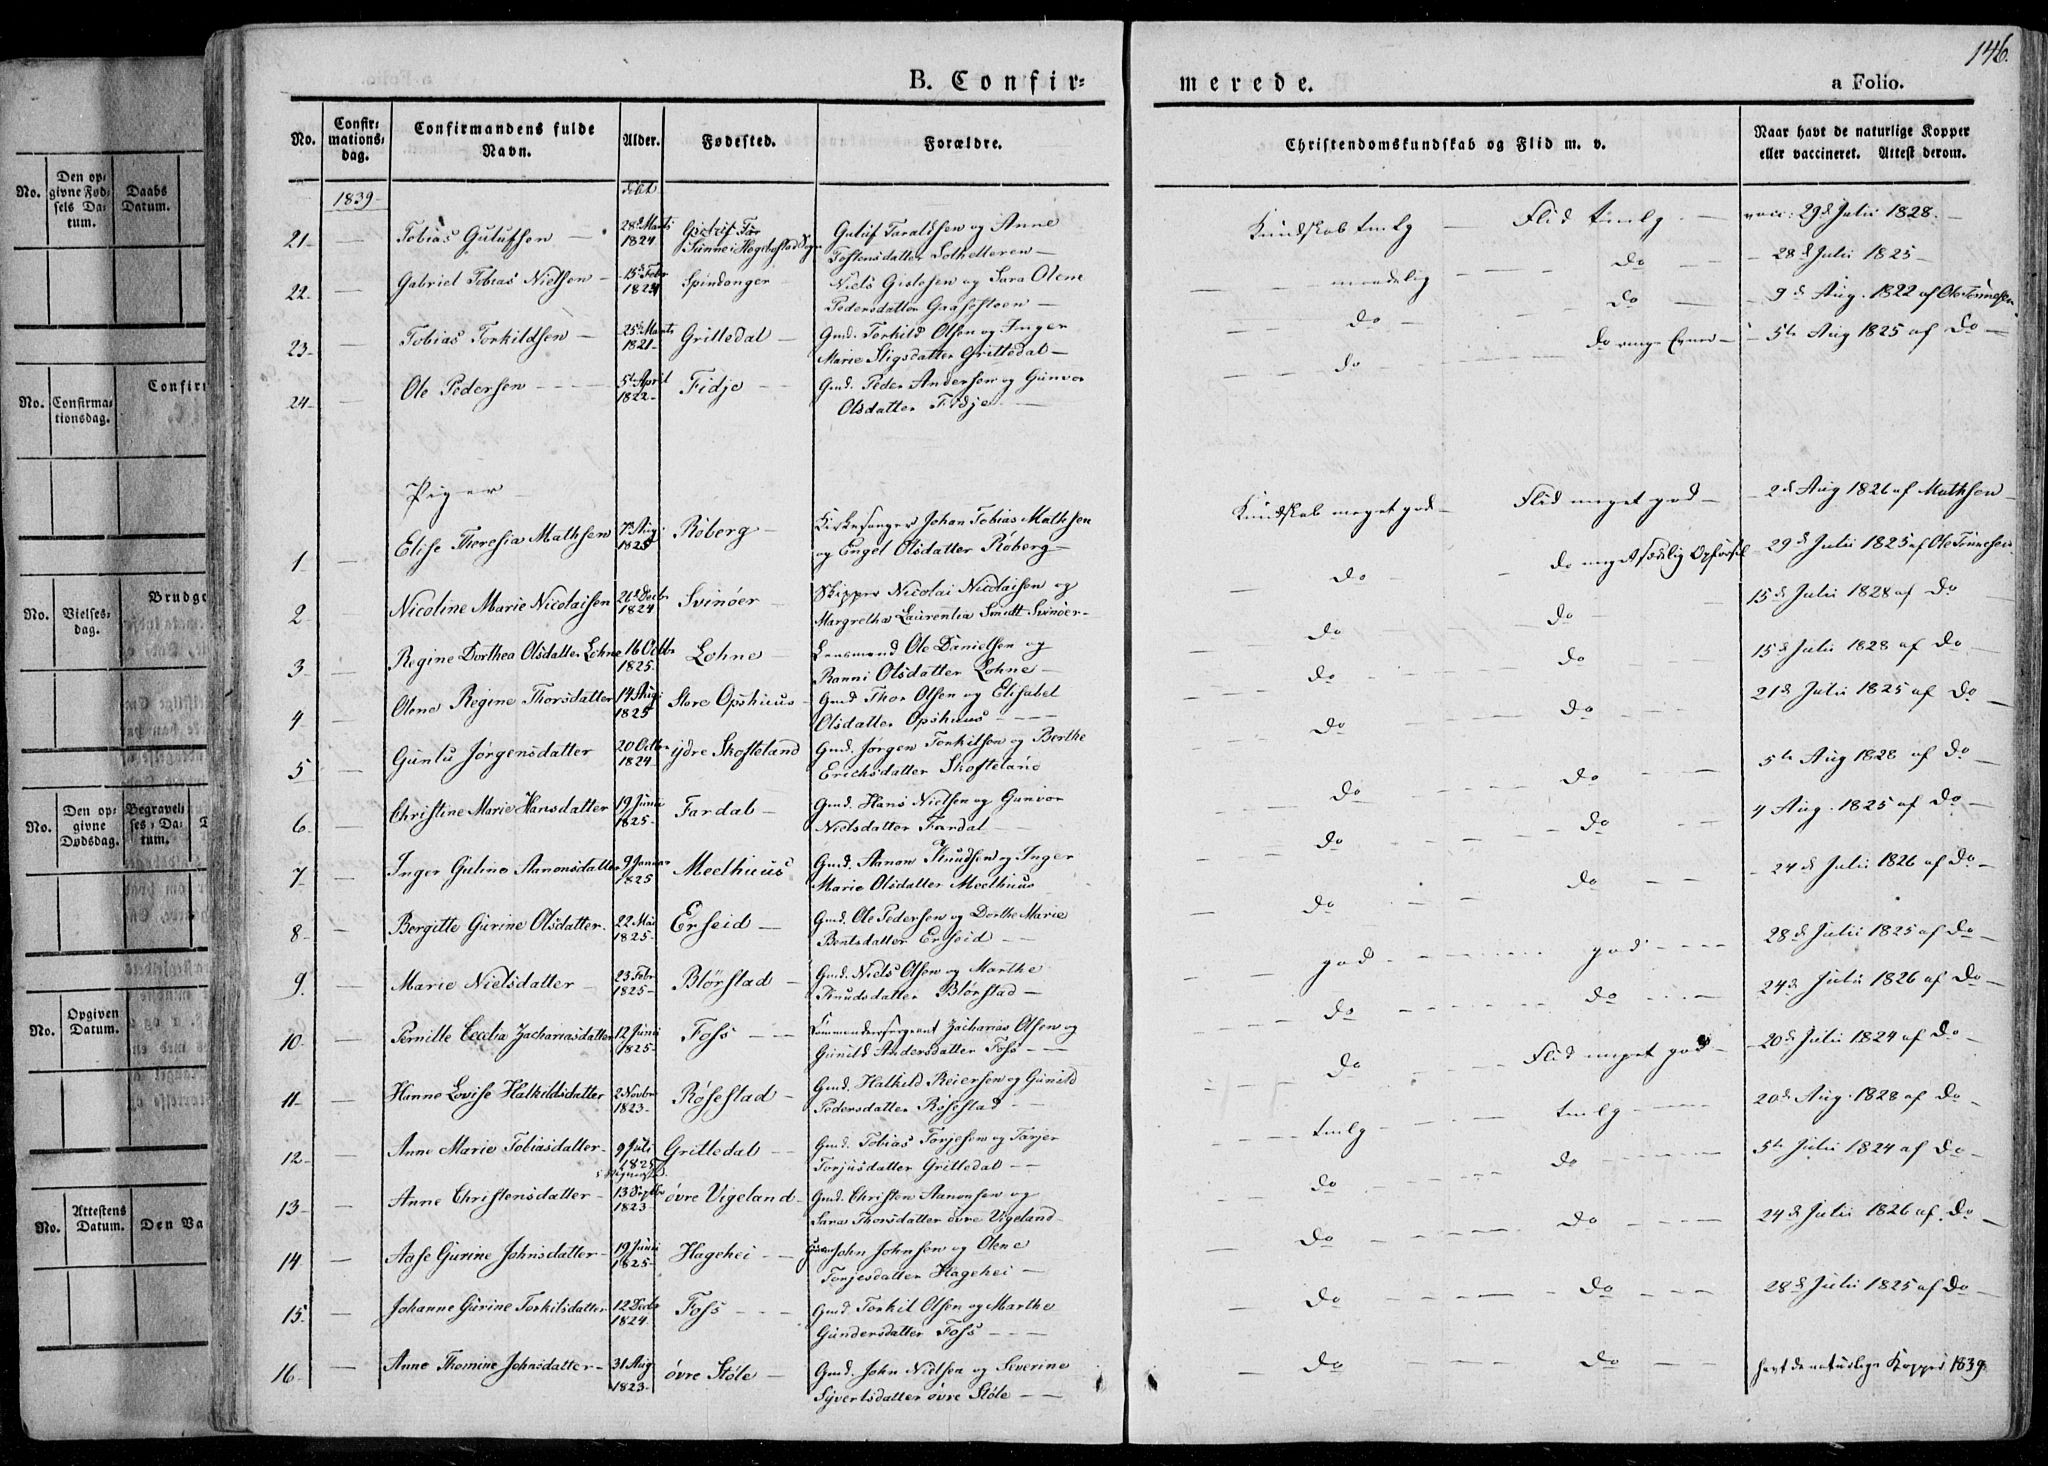 146.
B. Confirmerede.
a Folio.
No.
Confirmationsdag.
Confirmandens fulde Navn.
Alder.
Fødested.
Forældre.
Christendomskundskab og Flid m. v.
Naar havt de naturlige Kopper eller vaccineret. Attest derom.
1839-
døbt
21- Tobias Gulufsen - 28d Marti 1824
Guluf Taraldsen og Anne
Tostensdatter
Kundskab tmlg - Flid tmlg. - vacc: 29d Julii 1828.-
22- Gabriel Tobias Nielsen - 15d Febr 1824 Spindanger
Niels Gislesen og Sara Olene
Pedersdatter Graasteen -
maadelig - do - 28d Julii 1825-
23- Tobias Torkildsen - 25de Marts 1821- Grittedal -
Gmd. Torkild Olsen og Inger
Marie Stigsdatter Grittedal -
do - do - 9d Aug. 1822 af Ole Tønnesen
24- Ole Pedersen - 5t April 1822- Fidje -
Gmd. Peder Andersen og Gunvor
Olsdatter Fidje -
do - do ringe Evner - 5te Aug 1825 af Do -
Piger -
1 Elise Theresia Mathsen 7 Aug 1825 Roberg -
Kirkesanger Johan Tobias Mathsen
og Engel Olsdatter Roberg -
Kundskab meget god - Flid meget god - 2d Aug 1826 af Mathsen -
2- Nicoline Marie Nicolaisen 26 Decbr 1824 Svinøer -
Skipper Nicolai Nicolaisen og
Margretha Laurentia Smidt Svinøer -
do - do meget sædelig Opførsel - 29d Julii 1825 af Ole Tønnesen
3- Regine Dorthea Olsdatter Lohne 16 Octbr 1825. Lohne -
Lensmand Ole Danielsen og
Ranni Olsdatter Lohne -
do - do - 15d Julii 1828 af Do
4- Olene Regine Thorsdatter 14 Aug 1825 Store Opshuus -
Gmd Thor Olsen og Elisabet
Olsdatter Opshuus -
do - do - 15d Julii 1828 af Do
5- Guntu Jørgensdatter 20 Octbr 1824 ydre Skofteland
Gmd. Jørgen Torkilsen og Berthe
Erichsdatter Skofteland
do - do - 21d Julii 1825 af Do
6- Christine Marie Hansdatter 19 Junii 1825- Fardal -
Gmd. Hans Nielsen og Gunvor
Nielsdatter Fardal -
do - do - 5te Aug 1828 af Do
7- Inger Guline Aanonsdatter 9 Januar 1825 Meelhuus
Gmd. Aanon Knudsen og Inger
Marie Olsdatter Meelhuus
do - do - 4 Aug. 1825 af Do -
8- Bergitte Gurine Olsdatter. 22 Mai 1825- Erseid -
Gmd. Ole Pedersen og Dorthe Marie
Bentsdatter Erseid -
do - do - 24d Julii 1826 af Do
9. Marie Nielsdatter - 23 Febr 1825- Blørstad -
Gmd. Niels Olsen og Marthe
Knudsdatter Blørstad -
god - god - 28d Julii 1825 af Do -
10- Pernille Cecelia Zachariasdatter 12 Junii 1825- Foss -
Commandersergeant Zacharias Olsen og
Gunild Andersdatter Foss -
do - do - 24d Julii 1826 af Do -
11- Hanne Lovise Halkildsdatter 2 Novbr 1823- Røsestad -
Gmd. Halkild Reiersen og Gunild
Pedersdatter Røsestad -
do - Flid meget god - 20d Julii 1824 af Do -
12- Anne Marie Tobiasdatter - 9 Juli 1825 Grittedal -
Gmd. Tobias Torjesen og Tarjer
Torjusdatter Grittedal -
tmlg - tmlg - 20d Aug. 1828 af Do -
13- Anne Christensdatter - 13 Septbr 1823- øvre Vigeland -
Gmd. Christen Aanonsen og
Sara Thorsdatter øvre Vigeland -
do - do - 5te Julii 1824 af Do -
14 Aase Gurine Johnsdatter - 19 Junii 1825- Hagehei -
John Johnsen og Olene
Torjesdatter Hagehei -
do - do - 24d Julii 1826 af Do
15- Johanne Gurine Torkilsdatter 12 Decbr 1824 Foss -
Gmd. Torkil Olsen og Marthe
Gundersdatter Foss -
do - do - 28d Julii 1825 af Do
16- Anne Thomine Johnsdatter - 31 Aug 1823- øvre Støle -
Gmd. John Nielsen og Severine
Syvertsdatter øvre Støle -
do - do - havt de naturlige Kopper 1839.
No.
Den opgivne Fødsels Datum.
Daabs Datum.
No.
Confirmationsdag.
Confirm
No.
Vielsesdag.
Brudge
No.
Den opgivne Dødsdag.
Begravelses-Datum.
No.
Opgiven Datum.
No.
Attestens Datum.
Den Va